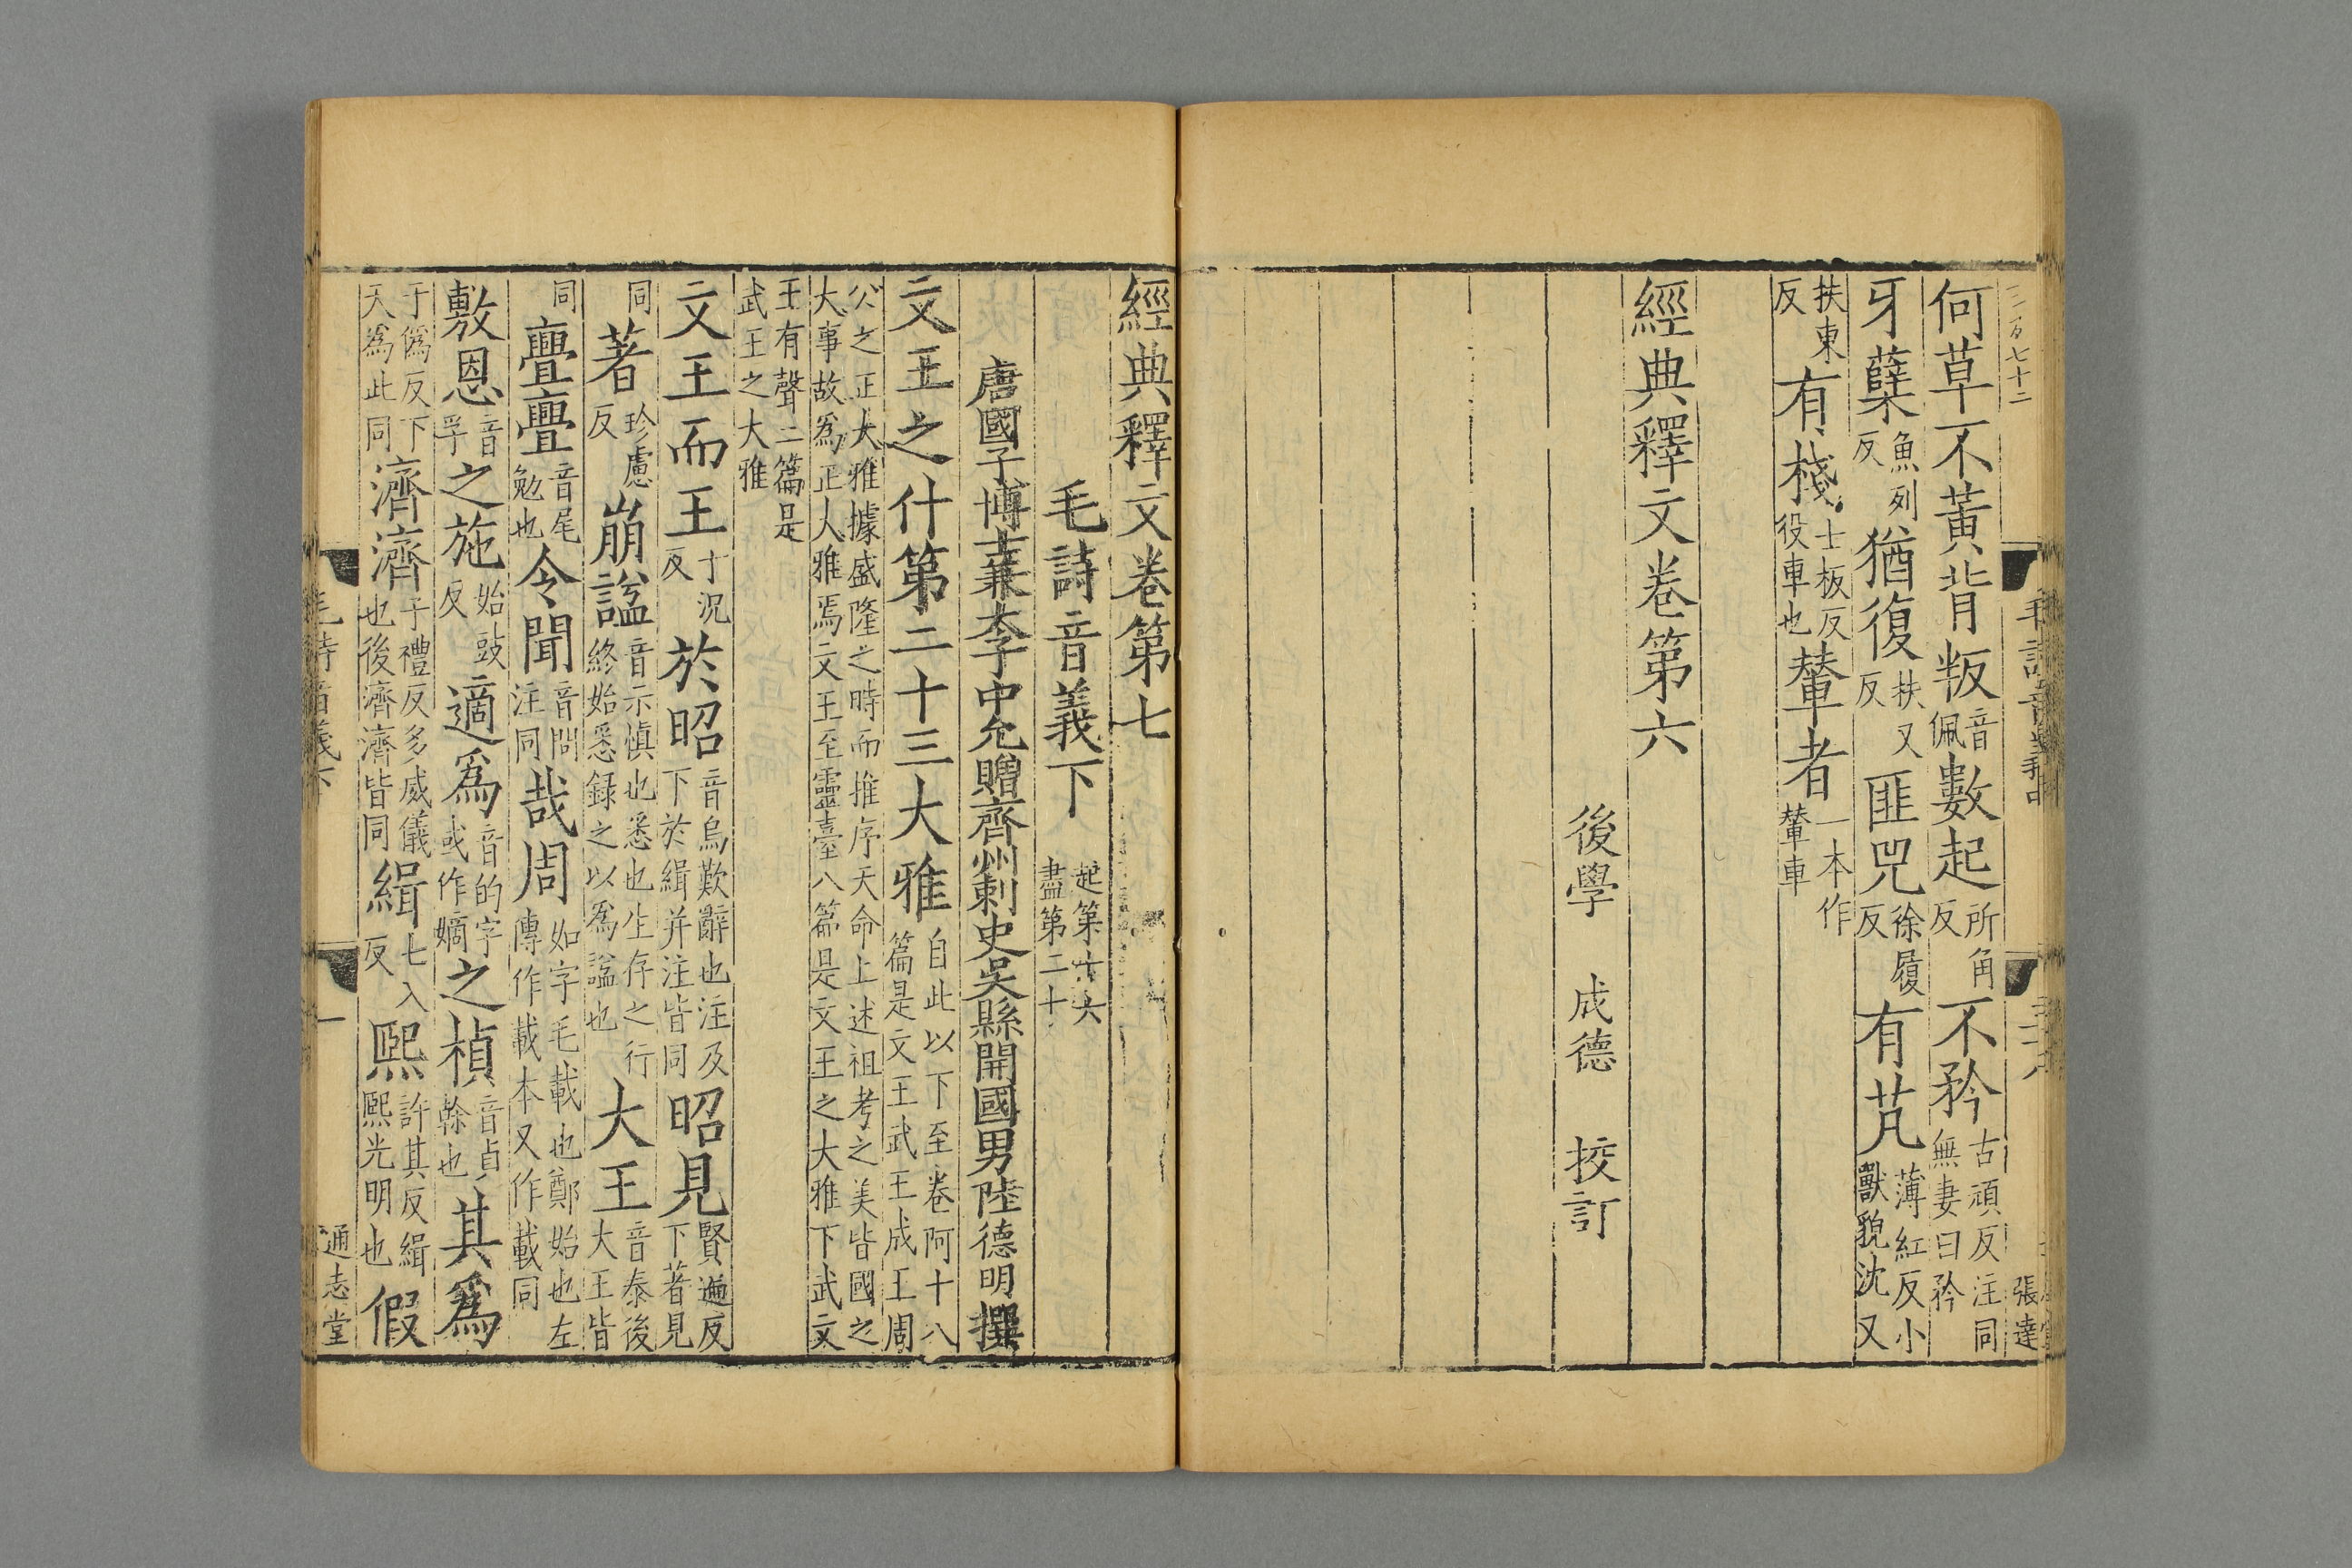 三百七十二
毛詩音義中 張達
何草不黃背叛音佩數起所角反不矜古頑反注同無妻曰矜
牙蘖魚列反猶復扶又反匪兕徐履反有芃薄紅反小獸貌沈又
扶東反有棧士板反役車也輦者一本作輦車
經典釋文卷第六
後學 成德 挍訂
經典釋文卷第七
毛詩音義下 起第十六盡第二十
唐國子博士兼太子中允贈齊州刺史吳縣開國男陸德明撰
文王之什第二十三大雅自此以下至卷阿十八篇是文王武王成王周
公之正大雅據盛隆之時而推序天命上述祖考之美皆國之大事故為正大雅焉文王至靈臺八篇是文王之大雅下武文
王有聲二篇是武王之大雅
文王而王于況反於昭音烏歎辭也注及下於緝并注皆同昭見賢遍反下著見
同著珍慮反崩謚音示慎也悉也生存之行終始悉録之以為謚也大王音泰後大王皆
同亹亹音尾勉也令聞音問注同哉周如字毛載也鄭始也左傳作載本又作載同
敷恩音孚之施始豉反適為音的字或作嫡之楨音貞榦也其為
于偽反下天為此同濟濟子禮反多威儀也後濟濟皆同緝七入反熙許其反緝熙光明也假
毛詩音義下 一 通志堂